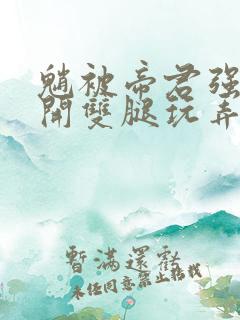 魈被帝君强
開雙腿玩弄
暫滿還虧
未经同意禁止转载